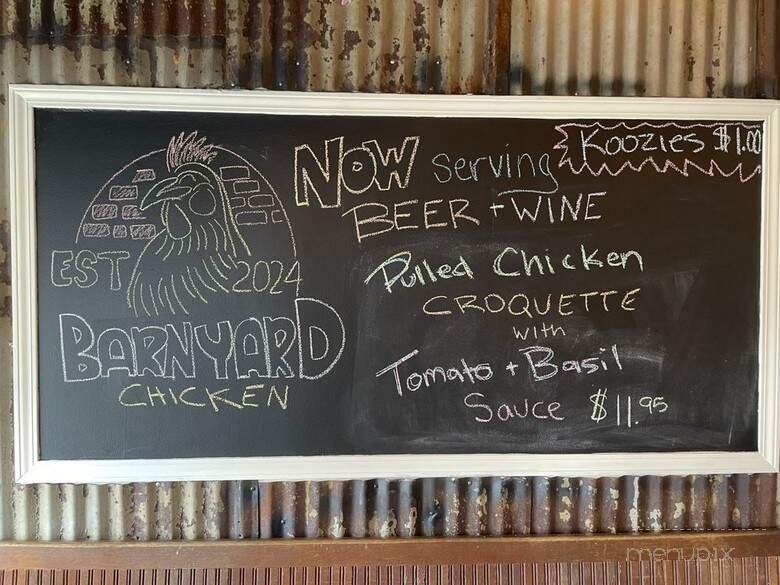 EST 2024
BARNYARD
CHICKEN
Koozies $1.00
NOW serving
BEER + WINE
Pulled Chicken
CROQUETTE
with
Tomato + Basil
Sauce $11.95
menupix